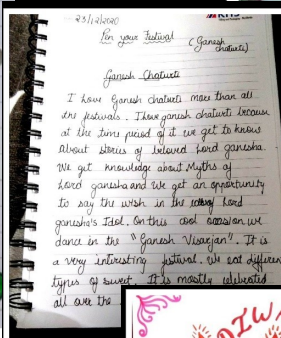 23/12/2020
Pen your Festival
(Ganesh
chaturti)
Ganesh Chaturti
I Love Ganesh chaturti more than all
the festivals. I love ganesh chaturti because
at the time period of it we get to know
about stories of beloved Lord ganesha.
We get knowledge about Myths of
Lord ganesha and we get an opportunity
to say the wish in the of Lord
ganesha's Idol. On this cool occasion we
dance in the "Ganesh Visarjan". It is
a very interesting festival. We eat differen
types of sweet. It is mostly celebrated
all over the
DIW